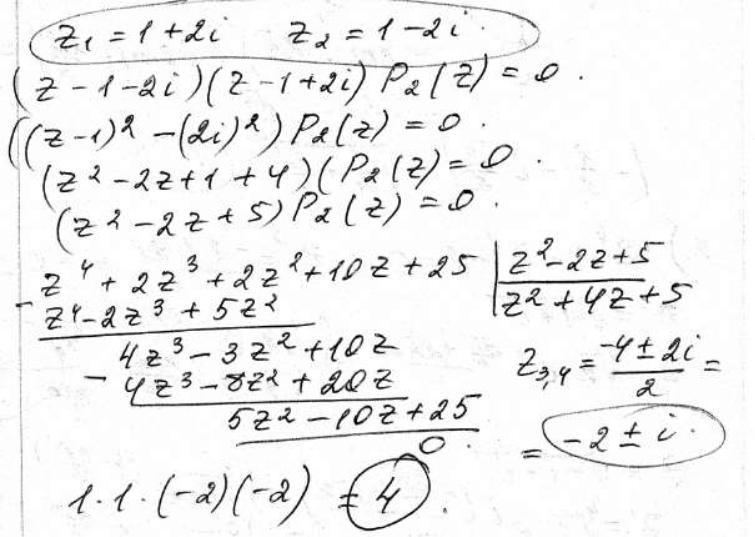 z₁ = 1 + 2i   z₂ = 1 - 2i.
(z - 1 - 2i)(z - 1 + 2i) P₂(z) = 0.
((z - 1)² - (2i)²) P₂(z) = 0.
(z² - 2z + 1 + 4)(P₂(z) = 0.
(z² - 2z + 5) P₂(z) = 0.
z⁴ + 2z³ + 2z² + 10z + 25 | z² - 2z + 5
- z⁴ - 2z³ + 5z² | z² + 4z + 5
4z³ - 3z² + 10z
- 4z³ - 8z² + 20z
5z² - 10z + 25
0.
z₃,₄ = (-4 ± 2i)/2 =
= -2 ± i.
1 · 1 · (-2)(-2) = 4.